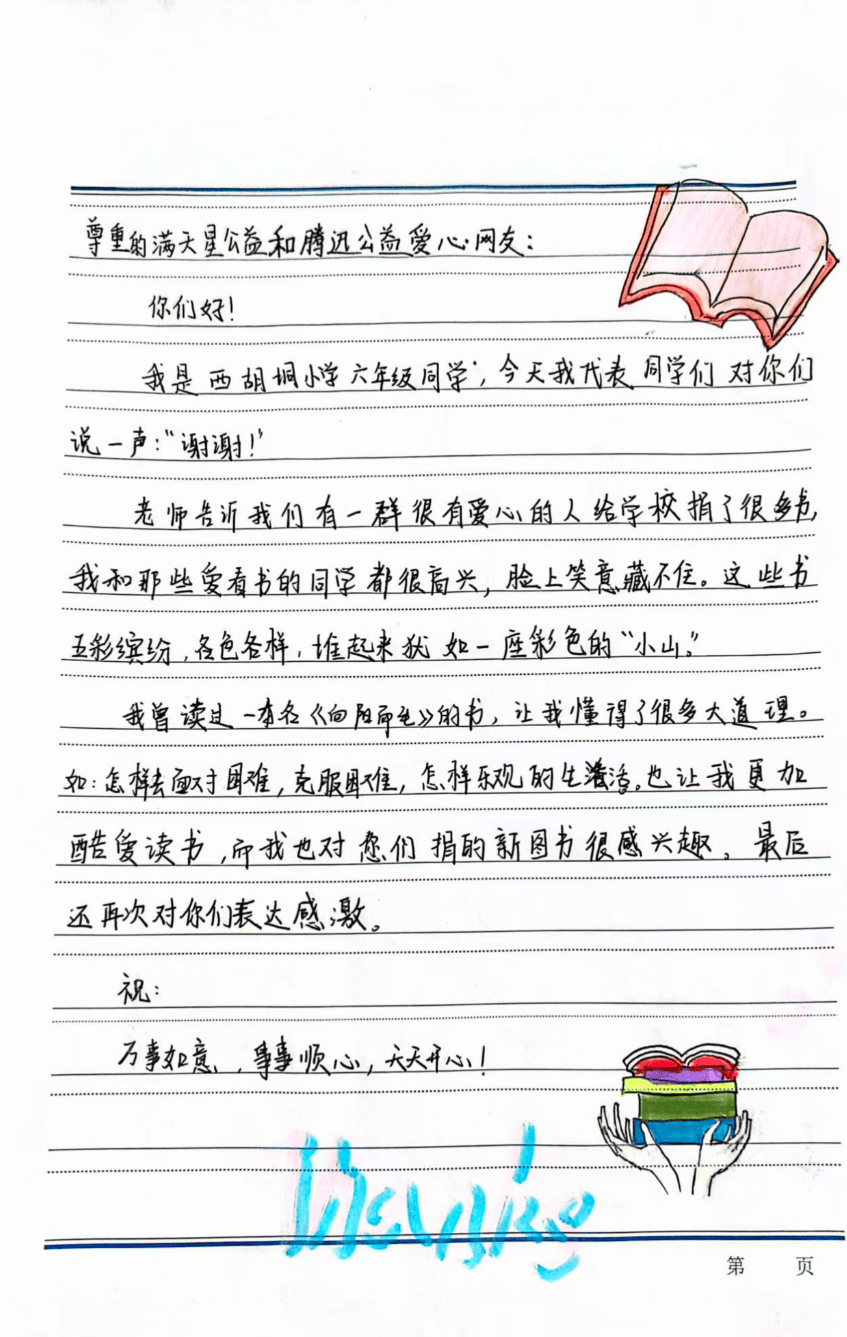 尊重的满天星公益和腾迅公益爱心网友：
你们好！
我是西胡垌小学六年级同学，今天我代表同学们对你们
说一声：“谢谢！”
老师告诉我们有一群很有爱心的人给学校捐了很多书，
我和那些爱看书的同学都很高兴，脸上笑意藏不住。这些书
五彩缤纷，各色各样，堆起来犹如一座彩色的“小山”。
我曾读过一本名《向阳而生》的书，让我懂得了很多大道理。
如：怎样去面对困难，克服困难，怎样乐观的生活。也让我更加
酷爱读书，而我也对您们捐的新图书很感兴趣。最后
还再次对你们表达感激。
祝：
万事如意，事事顺心，天天开心！
第 页